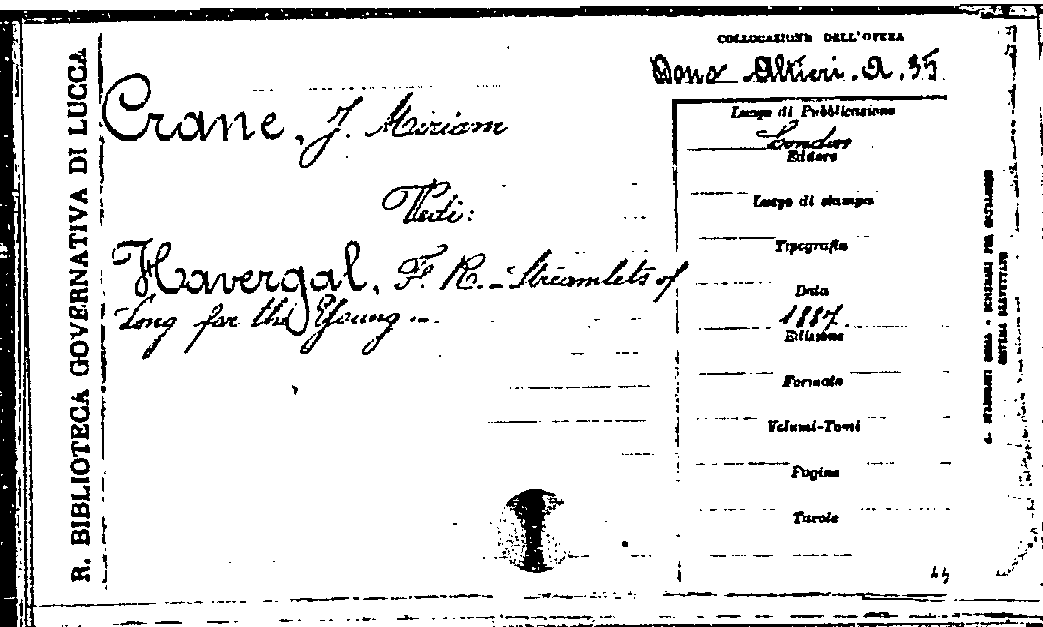 R. BIBLIOTECA GOVERNATIVA DI LUCCA
COLLOCAZIONE DELL'OPERA
Dono Altieri. A. 35
Crane, J. Miriam
Vedi:
Havergal, F. R. - Streamlets of
Song for the Young ...
Luogo di Pubblicazione
London
Editore
Luogo di stampa
Tipografia
Data
1887
Edizione
Formato
Volumi-Tomi
Pagine
Tavole